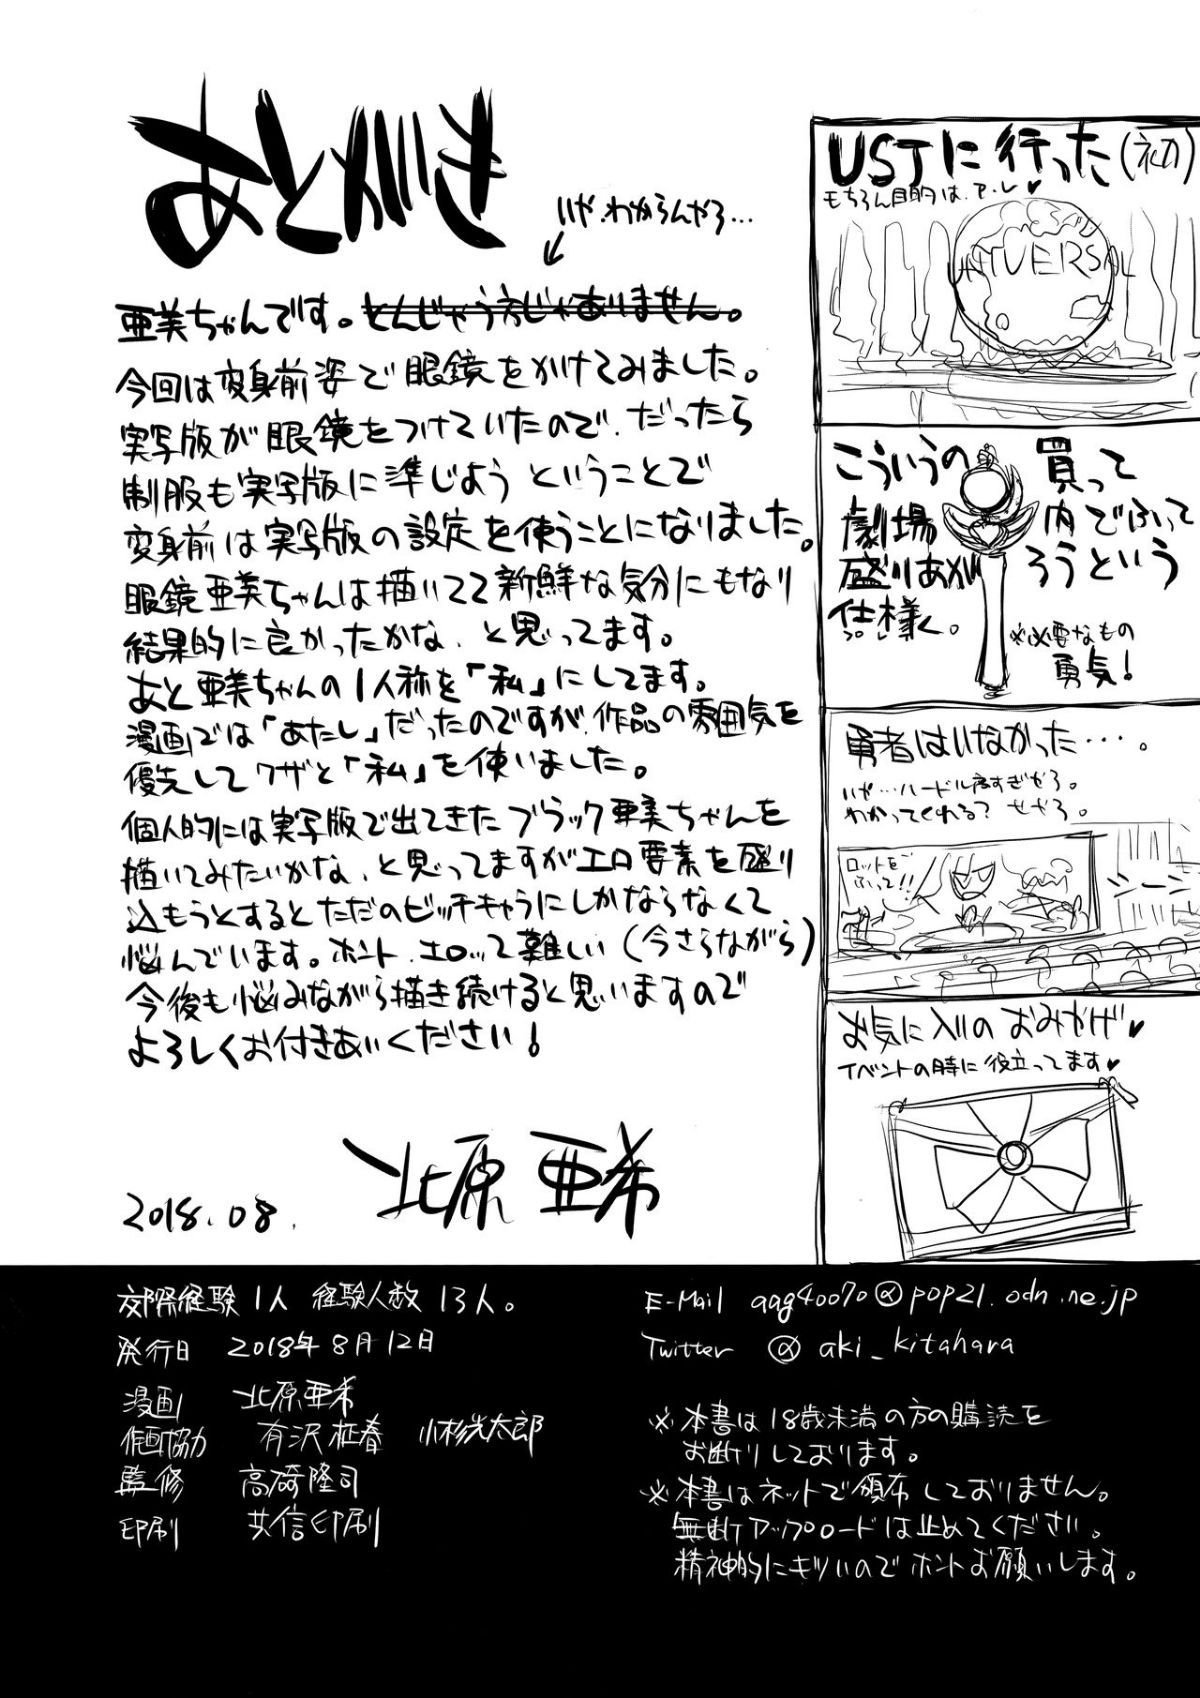 あとがき
いや、わからんやろ…
亜美ちゃんです。とんじゃう方じゃありません。
今回は変身前姿で眼鏡をかけてみました。
実写版が眼鏡をつけていたので、だったら
制服も実写版に準じようということで
変身前は実写版の設定を使うことになりました。
眼鏡亜美ちゃんは描いてて新鮮な気分にもなり
結果的に良かったかな、と思ってます。
あと亜美ちゃんの1人称を「私」にしてます。
漫画では「あたし」だったのですが、作品の雰囲気を
優先してワザと「私」を使いました。
個人的には実写版で出てきたブラック亜美ちゃんを
描いてみたいかな、と思ってますがエロ要素を盛り
込もうとするとただのビッチキャラにしかならなくて
悩んでいます。ホント、エロって難しい(今さらながら)
今後も悩みながら描き続けると思いますので
よろしくお付きあいください!
2018.08.
北原亜希
USJに行った(初)
もちろん目的は、ア・レ♥
UNIVERSAL
こういうの買って
劇場内でふって
盛りあがろうという
仕様。
※必要なもの
勇気!
勇者はいなかった・・・。
いや…ハードル高すぎやろ。
わかってくれる? せやろ。
ロッドを
ふって!!
シーン
お気に入りのおみやげ♥
イベントの時に役立ってます♥
交際経験1人 経験人数13人。
発行日 2018年8月12日
漫画 北原亜希
作画協力 有沢 小杉光太郎
監修 高崎隆司
印刷 共信印刷
E-Mail aag40070@pop21.odn.ne.jp
Twitter @aki_kitahara
※本書は18歳未満の方の購読を
お断りしております。
※本書はネットで頒布しておりません。
無断アップロードは止めてください。
精神的にキツいのでホントお願いします。